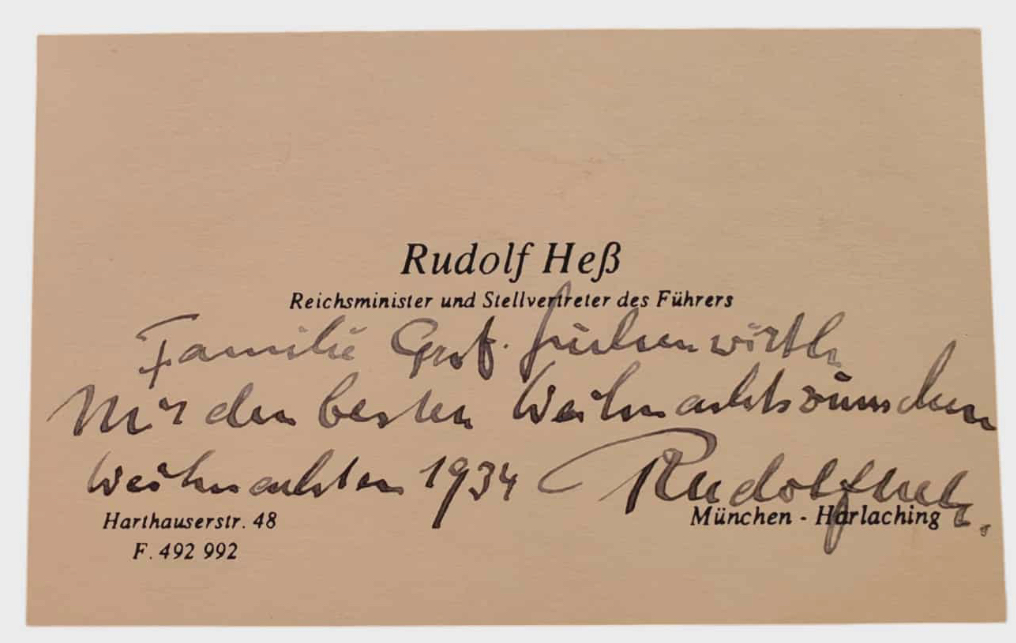 Rudolf Heß
Reichsminister und Stellvertreter des Führers
Familie Prof.
Mit den besten Weihnachtswünschen
Weihnachten 1934 Rudolf Heß.
Harthauserstr. 48
München - Harlaching
F. 492 992